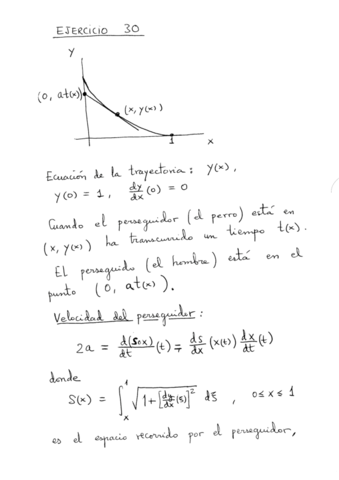 EJERCICIO 30
y
(0, at(x))
(x, y(x))
1
x
Ecuación de la trayectoria: y(x),
y(0) = 1, dy/dx (0) = 0
Cuando el perseguidor (el perro) está en
(x, y(x)) ha transcurrido un tiempo t(x).
El perseguido (el hombre) está en el
punto (0, at(x)).
Velocidad del perseguidor:
2a = d(sox)/dt (t) = ds/dx (x(t)) dx/dt (t)
donde
S(x) = ∫_x^1 √(1+[dy/dx (ξ)]²) dξ , 0≤x≤1
es el espacio recorrido por el perseguidor,